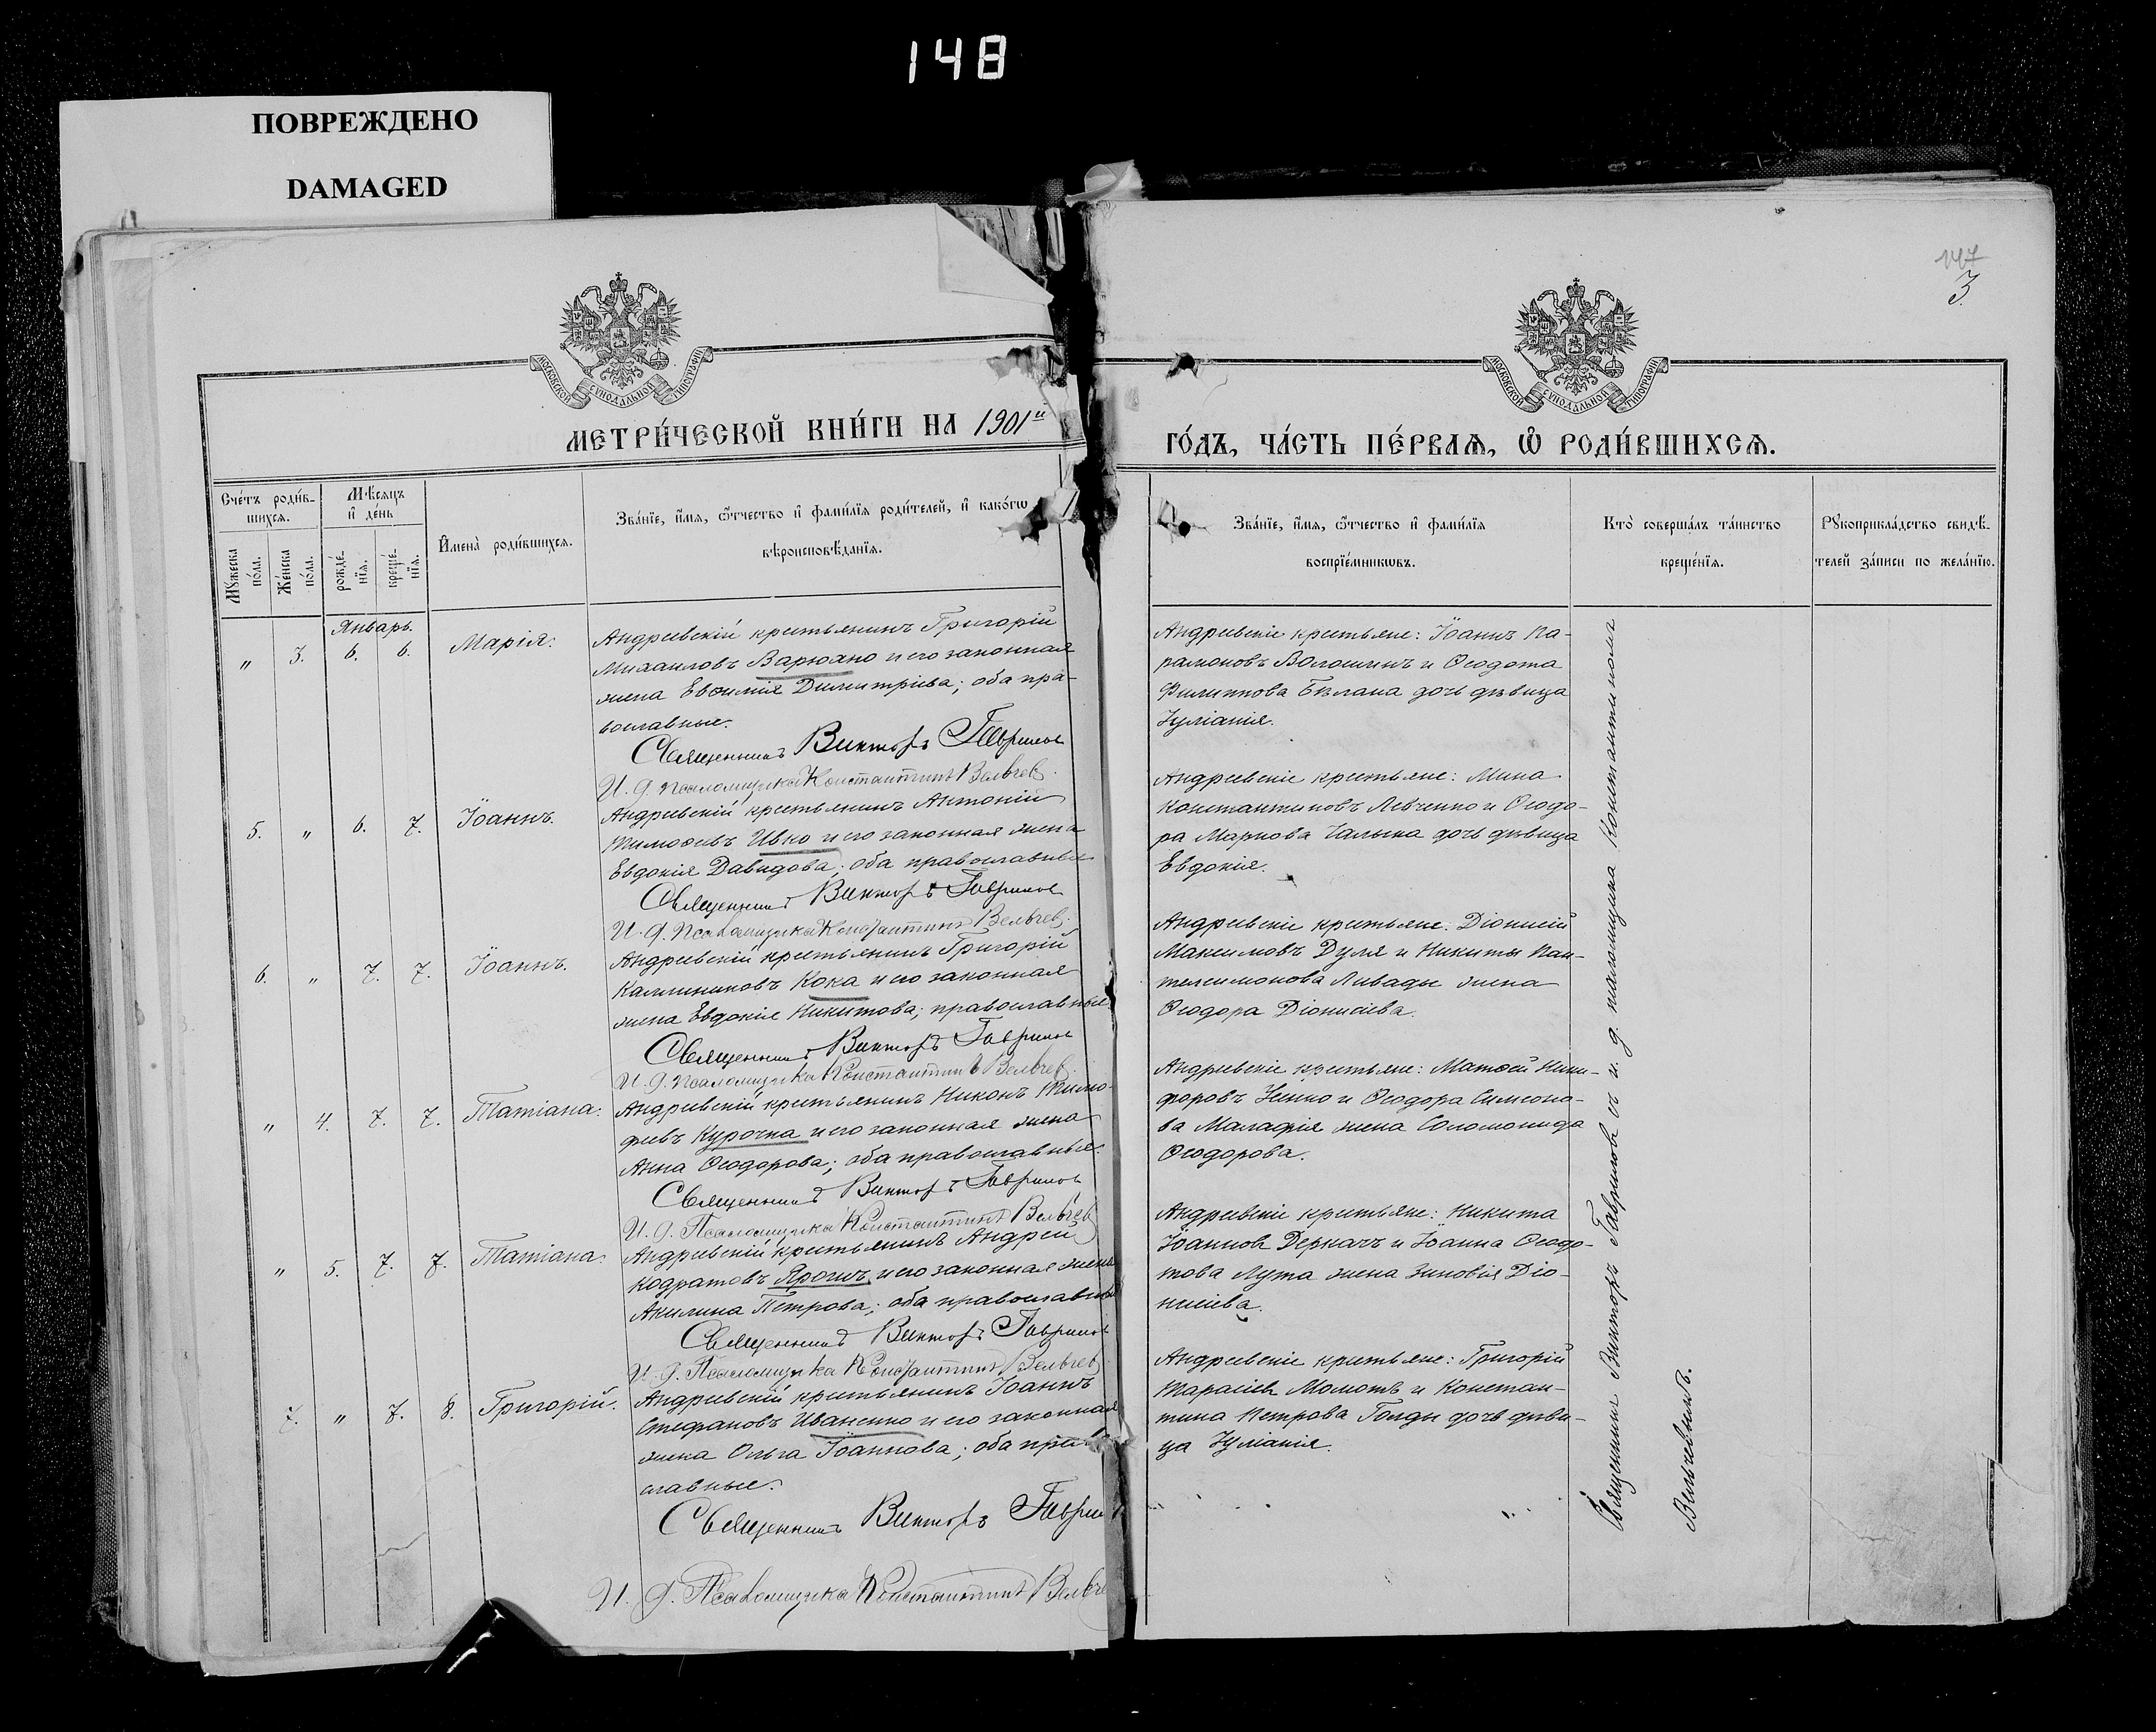 148
ПОВРЕЖДЕНО
DAMAGED
147
3
МОСКОВСКОЙ СѴНОДАЛЬНОЙ ТИПОГРАФІИ
МОСКОВСКОЙ СѴНОДАЛЬНОЙ ТИПОГРАФІИ
МЕТРИ́ЧЕСКОЙ КНИ́ГИ НА 1901й
ГО́ДЪ, ЧА́СТЬ ПЕ́РВАѦ, Ѽ РОДИ́ВШИХСѦ.
Сче́тъ роди́в-
шихсѧ.
Мꙋ́жеска
по́ла.
Же́нска
по́ла.
Мѣ́сѧцъ
и҆ де́нь
рожде́-
нїѧ.
креще́-
нїѧ.
И҆мена̀ роди́вшихсѧ.
Зва́нїе, и҆́мѧ, ѻ҆́тчество и҆ фами́лїѧ роди́телей, и҆ како́гѡ
вѣроисповѣ́данїѧ.
Зва́нїе, и҆́мѧ, ѻ҆́тчество и҆ фами́лїѧ
воспрїе́мникѡвъ.
Кто̀ соверша́лъ та́инство
креще́нїѧ.
Рꙋкоприкла́дство свидѣ́-
телей за́писи по жела́нїю.
Январь.
" 3. 6. 6. Марія:
Андреевскій крестьянинъ Григорій
Михаиловъ Варюхно и его законная
жена Евѳимія Димитріева; оба пра-
вославные.
Священникъ Викторъ Гавриловъ
И. д. псаломщика Константинъ Вельчевъ.
Андреевскіе крестьяне: Іоаннъ Па-
рамоновъ Волошинъ и Ѳеодота
Филиппова Бѣлана дочь дѣвица
Іуліанія.
5. " 6. 7. Іоаннъ.
Андреевскій крестьянинъ Антоній
Тимоѳеевъ Ивко и его законная жена
Евдокія Давидова; оба православные
Священникъ Викторъ Гавриловъ
И. д. Псаломщика Константинъ Вельчевъ.
Андреевскіе крестьяне: Мина
Константиновъ Левченко и Ѳеодо-
ра Маркова Чалыка дочь дѣвица
Евдокія.
6. " 7. 7. Іоаннъ.
Андреевскій крестьянинъ Григорій
Каллиниковъ Кока и его законная
жена Евдокія Никитова; православные
Священникъ Викторъ Гавриловъ
И. д. псаломщика Константинъ Вельчевъ.
Андреевскіе крестьяне: Діонисій
Максимовъ Дуля и Никиты Пан-
телеимонова Ливады жена
Ѳеодора Діонисіева.
" 4. 7. 7. Татіана:
Андреевскій крестьянинъ Никонъ Тимо-
феевъ Курочка и его законная жена
Анна Ѳеодорова; оба православные.
Священникъ Викторъ Гавриловъ
И. д. Псаломщика Константинъ Вельчевъ
Андреевскіе крестьяне: Матѳей Ники-
форовъ и Ѳеодора Симеоно-
ва Малафія жена Соломонида
Ѳеодорова.
" 5. 7. 7. Татіана:
Андреевскій крестьянинъ Андрей
Кодратовъ Ярошъ и его законная жена
Акилина Петрова; оба православные
Священникъ Викторъ Гавриловъ
И. д. Псаломщика Константинъ Вельчевъ
Андреевскіе крестьяне: Никита
Іоанновъ Деркачъ и Іоанна Ѳеодо-
това Лута жена Зиновія Діо-
нисіева.
7. " 7. 8. Григорій.
Андреевскій крестьянинъ Іоаннъ
Стефановъ Иваненко и его законная
жена Ольга Іоаннова; оба право
славные.
Священникъ Викторъ Гаврил
И. д. Псаломщика Константинъ Вельче
Андреевскіе крестьяне: Григорій
Тарасіевъ Момотъ и Констан-
тина Петрова Голды дочь дѣви-
ца Іуліанія.
Священникъ Викторъ Гавриловъ съ и. д. псаломщика Константиномъ
Вельчевымъ.